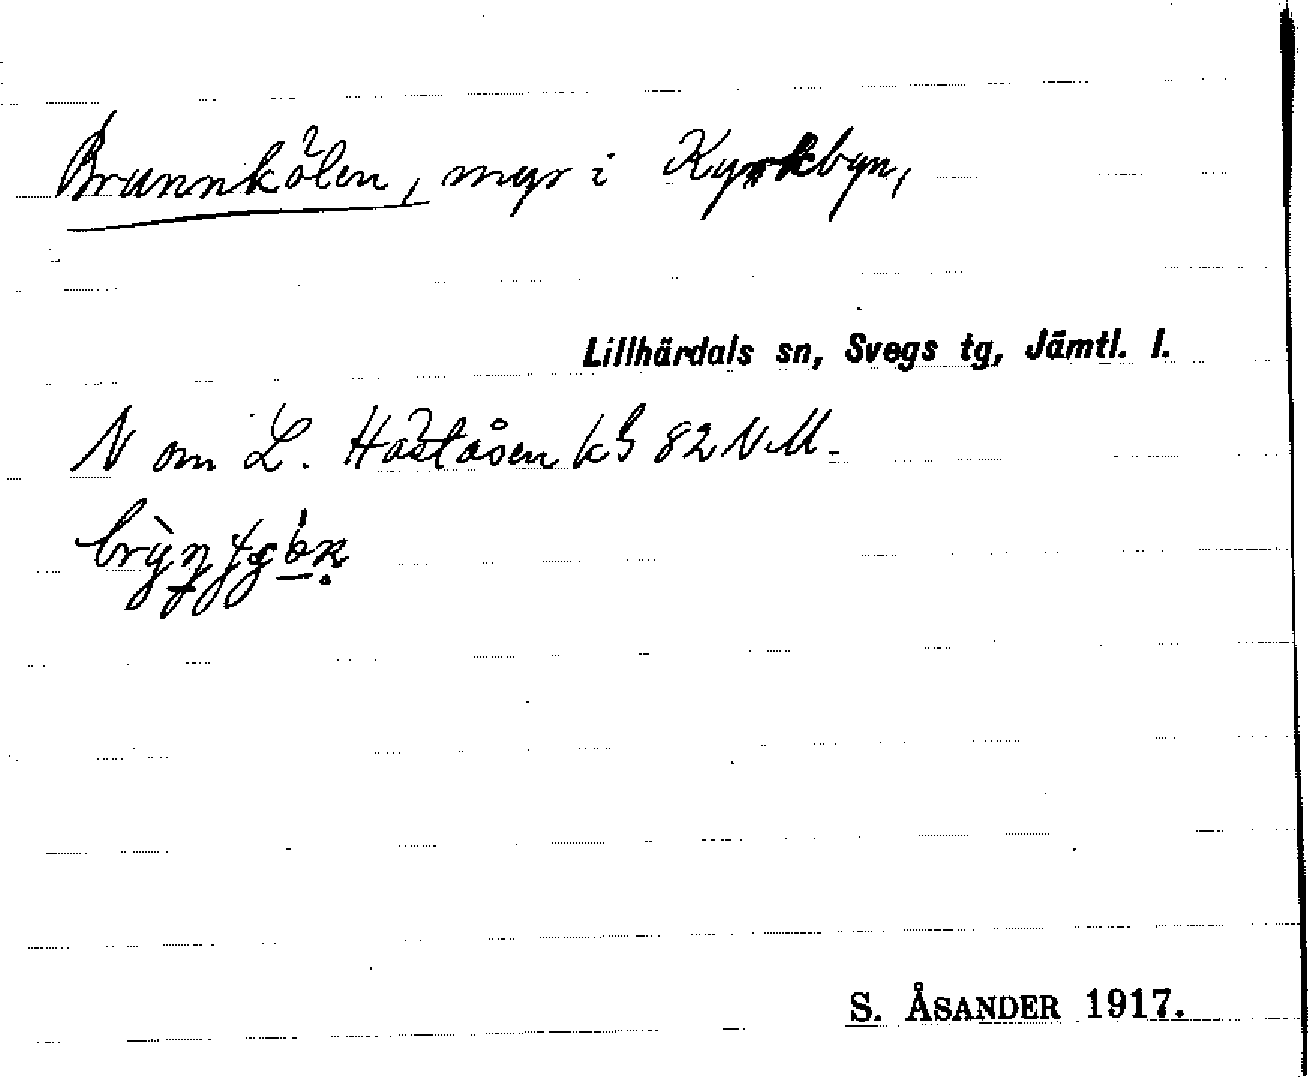 Brunnkölen, myr i Kyrkbyn,
Lillhärdals sn, Svegs tg, Jämtl. l.
N om L. Håståsen kS 82 N.M.
S. ÅSANDER 1917.